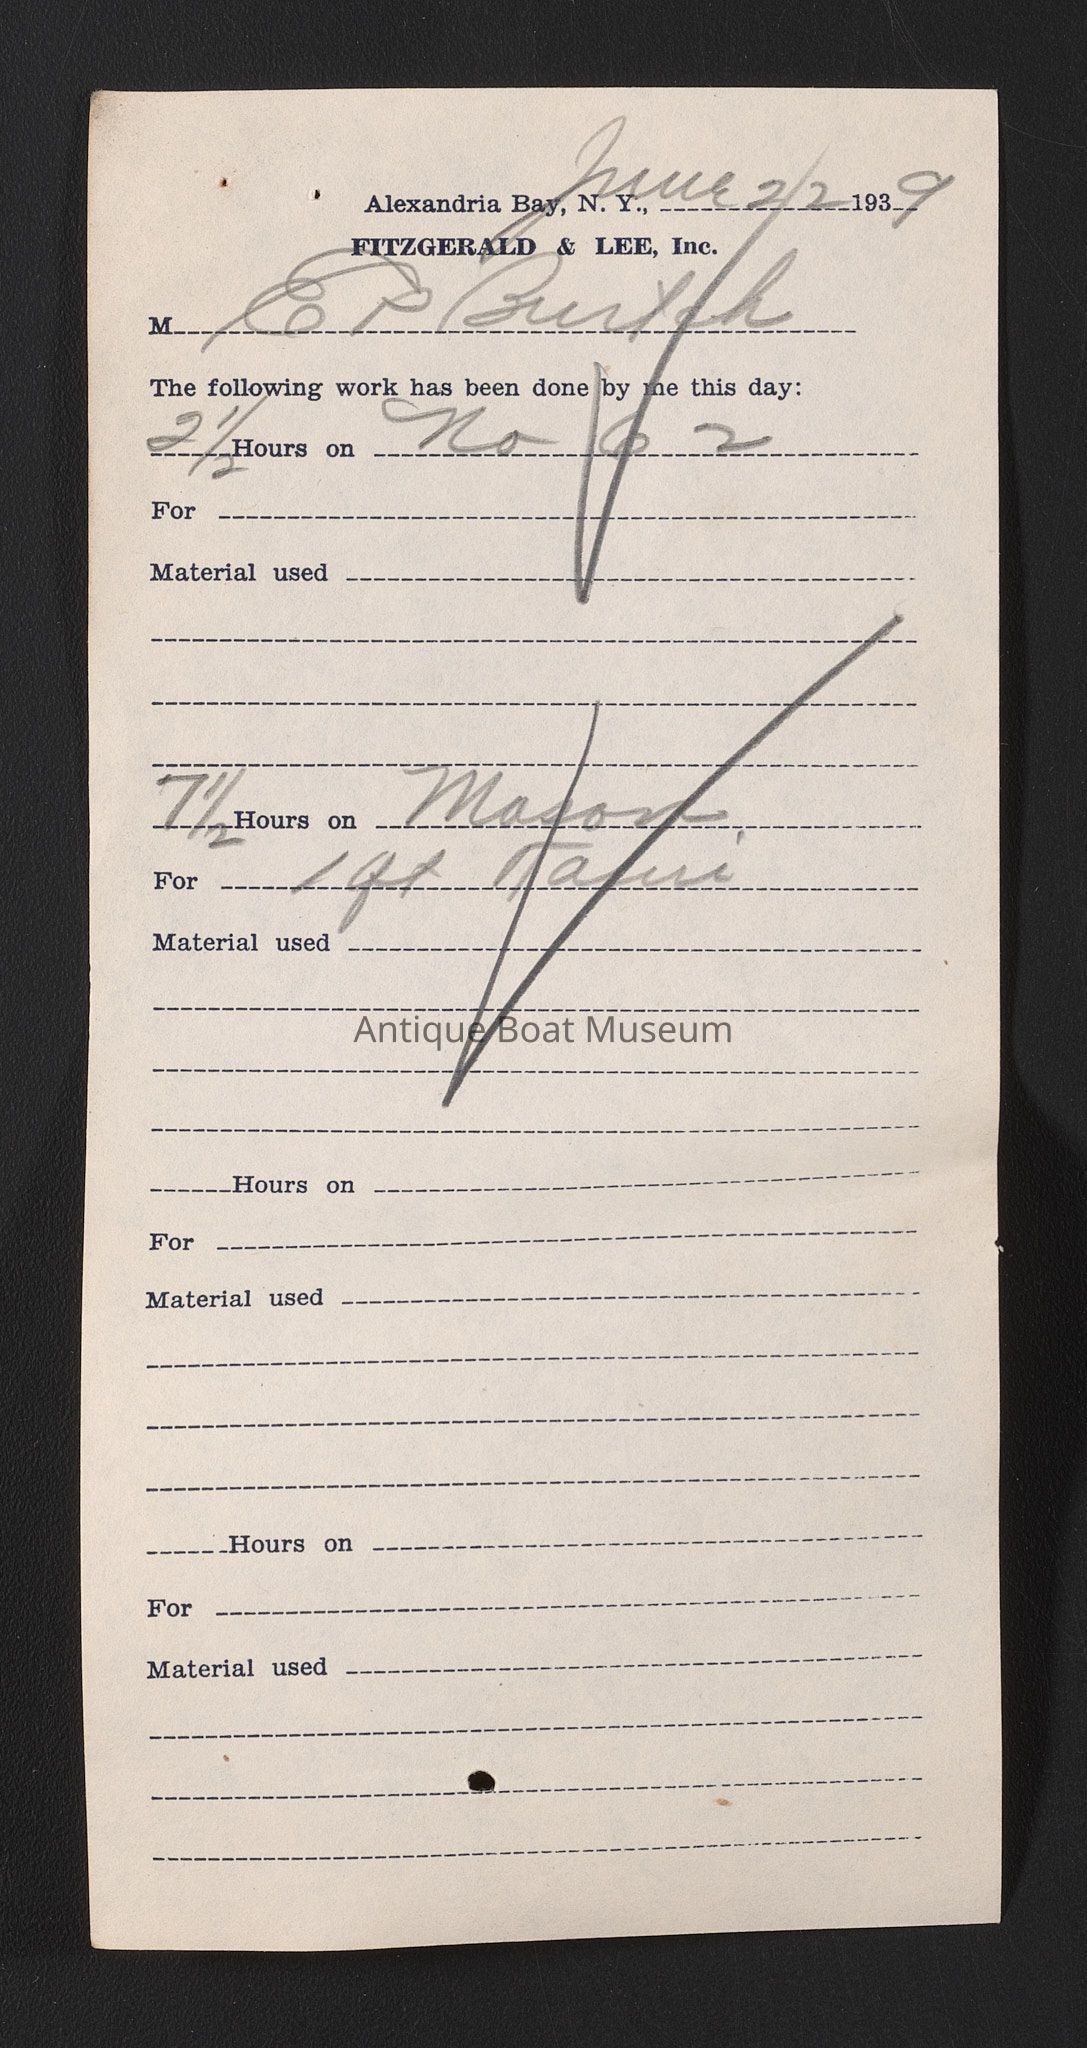 Alexandria Bay, N. Y., June 22 1939
FITZGERALD & LEE, Inc.
M E P Burtch
The following work has been done by me this day:
2 1/2 Hours on No 62
For
Material used
7 1/2 Hours on Mason
For 1 qt Kauri
Material used
Antique Boat Museum
Hours on
For
Material used
Hours on
For
Material used